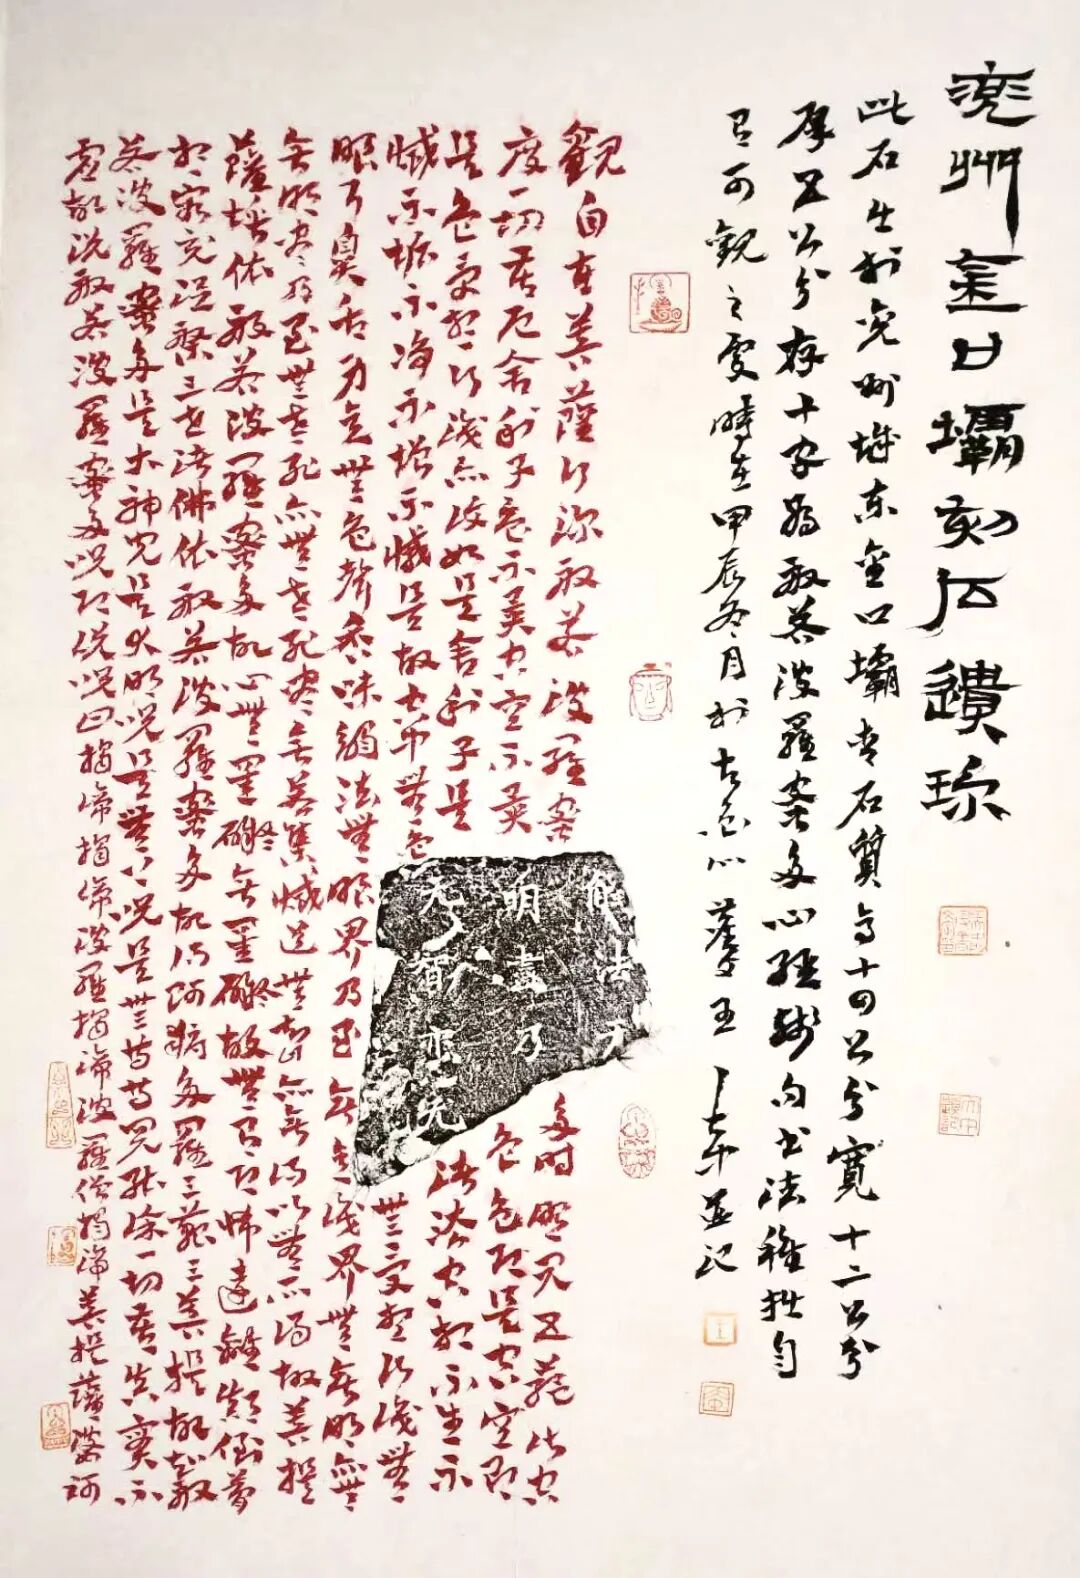 兖州金口壩刻石遺珎
此石出於兖州城東金口壩青石質高十四公分寬十二公分
厚五公分存十字為般若波羅蜜多心經殘句書法稚拙自
有可觀之處時在甲辰冬月於古 王 並记
觀自在菩薩行深般若波羅蜜多時照見五蘊皆空
度一切苦厄舍利子色不異空空不異色色即是空空即
是色受想行識亦復如是舍利子是諸法空相不生不
滅不垢不淨不增不滅是故空中無色無受想行識無
眼耳鼻舌身意無色聲香味觸法無眼界乃至無意識界無無明亦無
無明盡乃至無老死亦無老死盡無苦集滅道無智亦無得以無所得故菩提
薩埵依般若波羅蜜多故心無罣礙無罣礙故無有恐怖遠離顛倒夢
想究竟涅槃三世諸佛依般若波羅蜜多故得阿耨多羅三藐三菩提故知般
若波羅蜜多是大神咒是大明咒是無上咒是無等等咒能除一切苦真實不
虛故說般若波羅蜜多咒即說咒曰揭帝揭帝波羅揭諦波羅僧揭諦菩提薩婆訶
法无
明盡乃
无智亦无